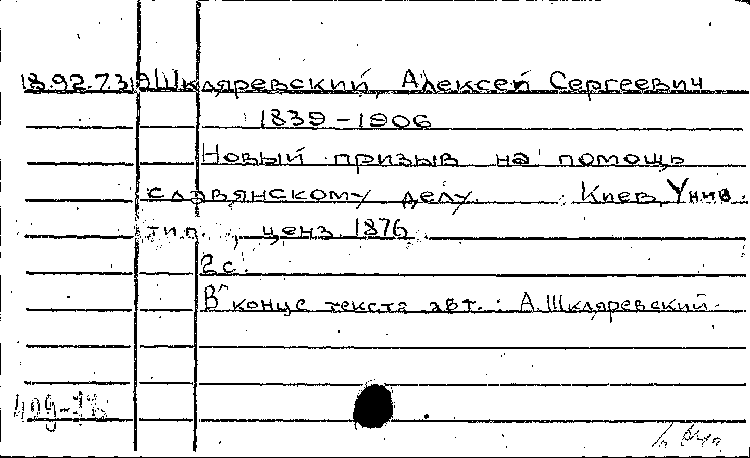 18.92.7.319 Шкляревский, Алексей Сергеевич
1839-1906
Новый призыв на помощь
славянскому делу. Киев, Унив.
тип., ценз. 1876
2 с.
В конце текста авт.: А. Шкляревский.